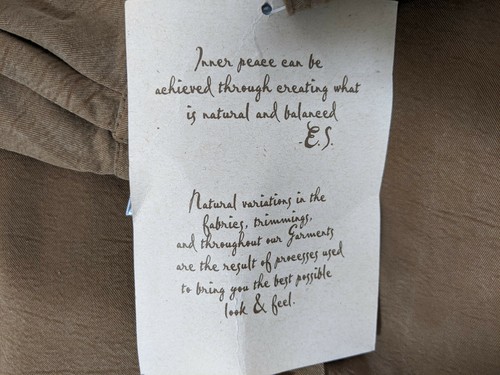 Inner peace can be
achieved through creating what
is natural and balanced
-E.S.
Natural variations in the
fabrics, trimmings,
and throughout our Garments
are the result of processes used
to bring you the best possible
look & feel.